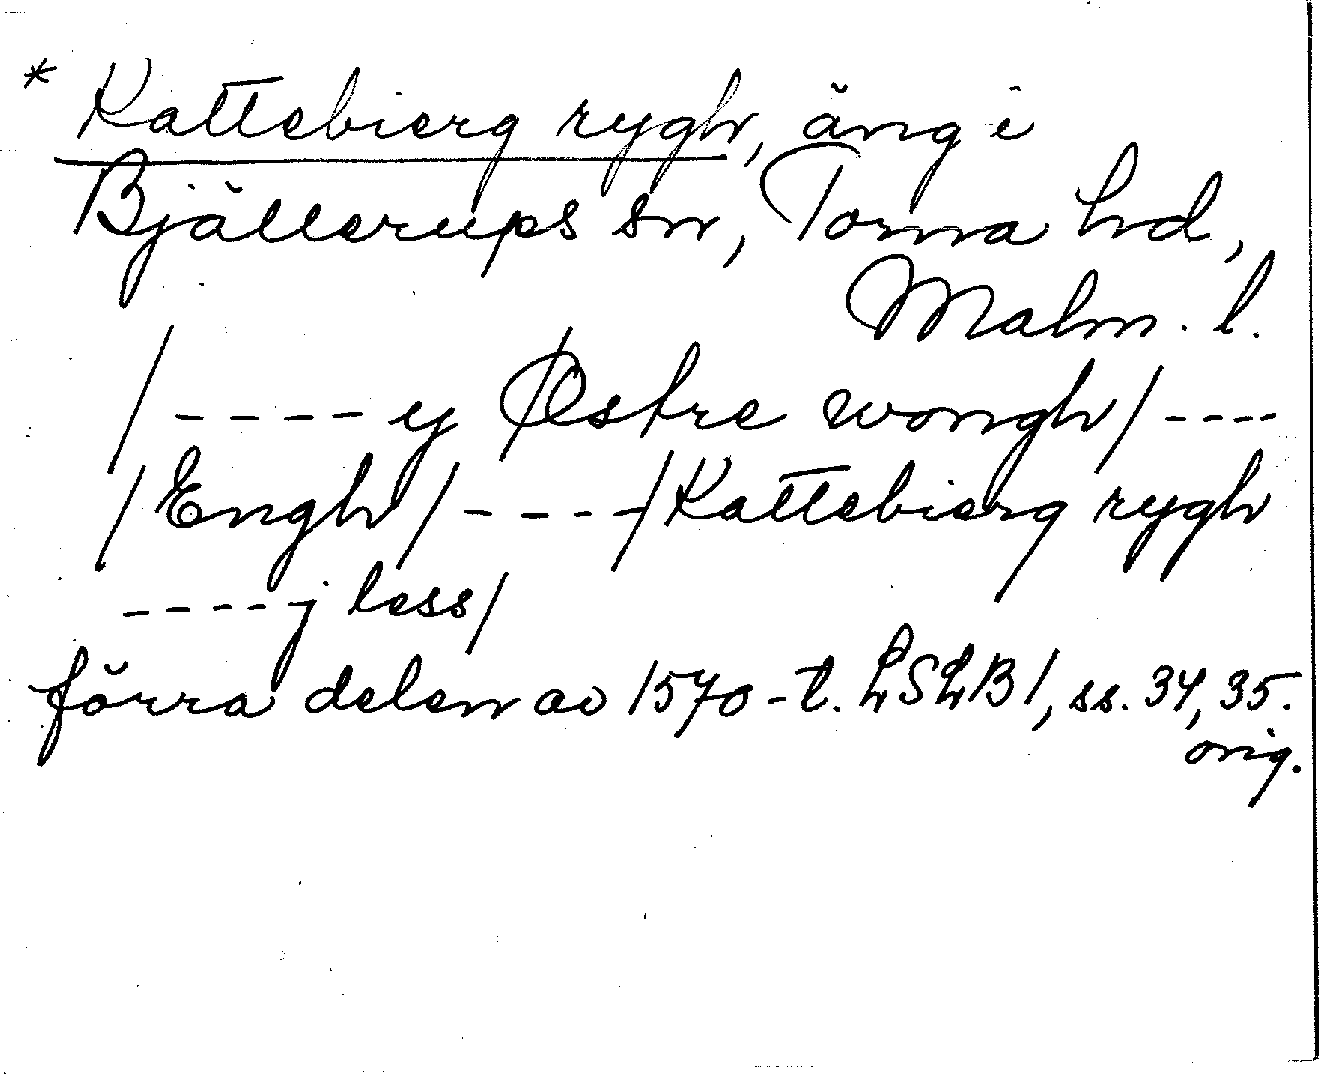 * Kattebierg rygh, äng i
Bjällerups sn, Torna hd,
Malm. l.
/---- ij Østre wongh/----
/Engh/----/Kattebierg rygh
----j less/
förra delen av 1570-t. LSLB 1, ss. 34, 35.
orig.